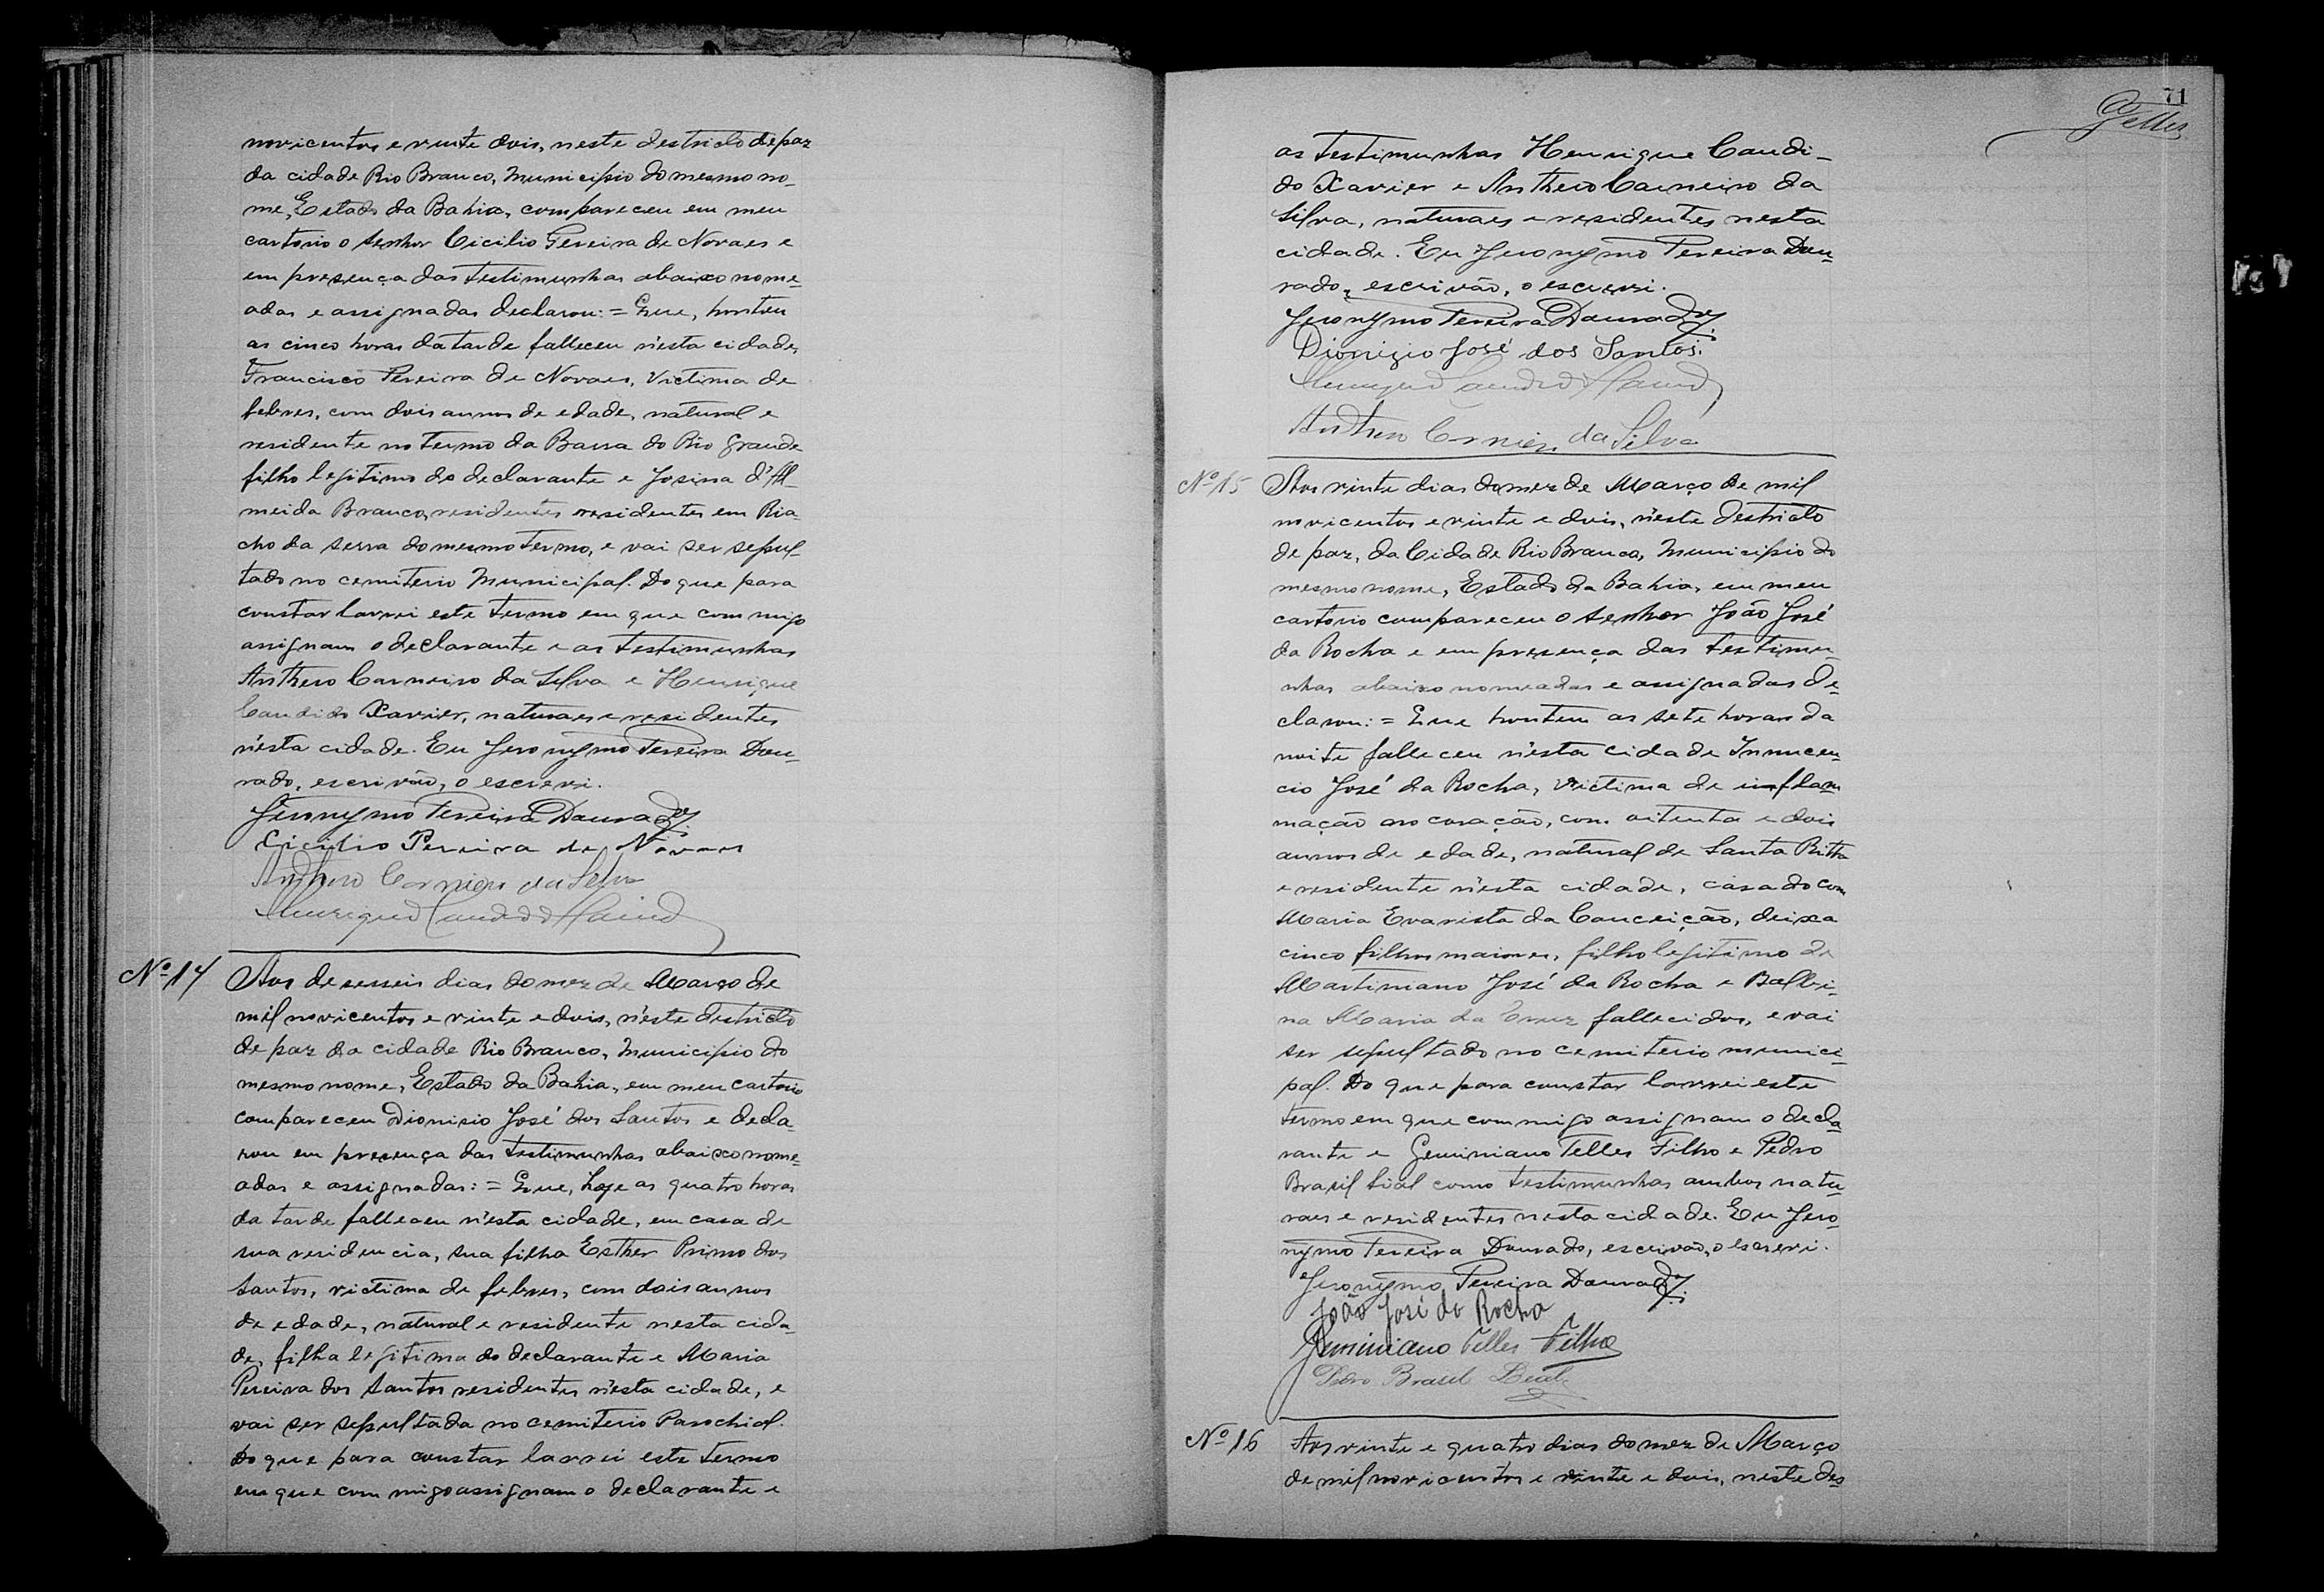 novicentos e vinte dois, neste destricto de paz
da cidade Rio Branco, Municipio do mesmo no-
me, Estado da Bahia, compareceu em meu
cartorio o senhor Cicilio Pereira de Novaes e
em presença das testimunhas abaixo nome-
adas e assignadas declarou: = Que, hontem
as cinco horas da tarde falleceu n'esta cidade,
Francisco Pereira de Novaes, victima de
febres, com dois annos de edade, natural e
residente no termo da Barra do Rio Grande
filho legitimo do declarante e Josina d'Al-
meida Branco, residentes residentes em Ria-
cho da serra do mesmo termo, e vai ser sepul-
tado no cemiterio Municipal. Do que para
constar lavrei este termo em que commigo
assignam o declarante e as testimunhas
Anthero Carneiro da Silva e Henrique
Candido Xavier, naturaes e residentes
n'esta cidade. Eu Jeronymo Pereira Dou-
rado, escrivão, o escrevi.
Jeronymo Pereira Dourado
Cicilio Pereira de Novaes
Anthero Carneiro da Silva
Henrique Candido Xavier
Nº 14 Aos deseseis dias do mez de Março de
mil novicentos e vinte e dois, n'este destricto
de paz da cidade Rio Branco, Municipio do
mesmo nome, Estado da Bahia, em meu cartorio
compareceu Dionisio José dos Santos e decla-
rou em presença das testimunhas abaixo nome-
adas e assignadas: = Que, hoje as quatro horas
da tarde falleceu n'esta cidade, em casa de
sua residencia, sua filha Esther Primo dos
Santos, victima de febres, com dois annos
de edade, natural e residente nesta cida-
de, filha legitima do declarante e Maria
Pereira dos Santos residentes n'esta cidade, e
vai ser sepultada no cemiterio Parochial.
Do que para constar lavrei este termo
em que commigo assignam o declarante e
71
Telles
as testimunhas Henrique Candi-
do Xavier e Anthero Carneiro da
Silva, naturaes e residentes nesta
cidade. Eu Jeronymo Pereira Dou-
rado, escrivão, o escrevi.
Jeronymo Pereira Dourado
Dionizio José dos Santos.
Henrique Candido Xavier
Anthero Carneiro da Silva
Nº 15 Aos vinte dias do mez de Março de mil
novicentos e vinte e dois, n'este destricto
de paz, da Cidade Rio Branco, Municipio do
mesmo nome, Estado da Bahia, em meu
cartorio compareceu o senhor João José
da Rocha e em presença das testimu-
nhas abaixo nomeadas e assignadas de-
clarou: = Que hontem as sete horas da
noite falleceu n'esta cidade Innucen-
cio José da Rocha, victima de inflam
mação no coração, com oitenta e dois
annos de edade, natural de Santa Ritta
e residente n'esta cidade, casado com
Maria Evarista da Conceição, deixa
cinco filhos maiores, filho legitimo de
Martiniano José da Rocha e Balbi-
na Maria da Cruz fallecidos, e vai
ser sepultado no cemiterio munici-
pal. Do que para constar lavrei este
termo em que commigo assignam o decla
rante e Geminiano Telles Filho e Pedro
Brasil Lial como testimunhas ambos natu-
raes e residentes nesta cidade. Eu Jero-
nymo Pereira Dourado, escrivão, o escrevi.
Jeronymo Pereira Dourado
João José da Rocha
Geminiano Telles Filho
Pedro Brasil Leal
Nº 16 Aos vinte e quatro dias do mez de Março
de mil novicentos e vinte e dois, neste des